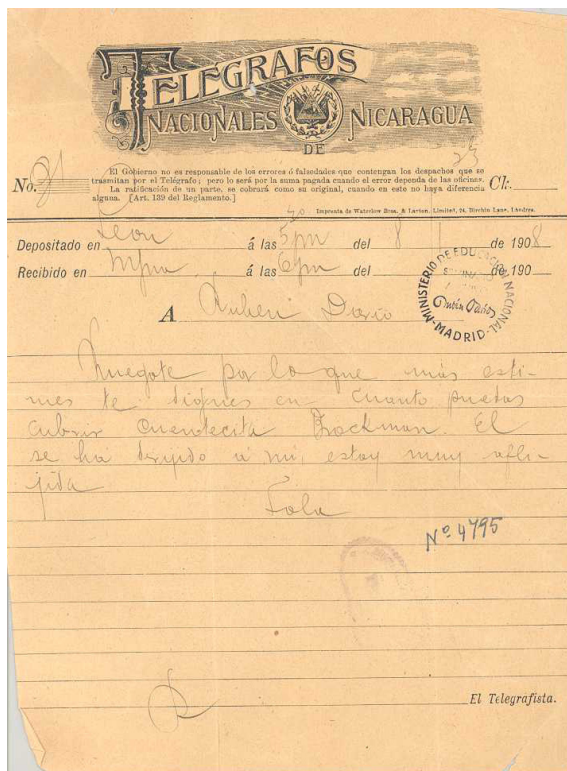 TELÉGRAFOS
NACIONALES
DE
NICARAGUA
El Gobierno no es responsable de los errores ó falsedades que contengan los despachos que se
trasmitan por el Telégrafo; pero lo será por la suma pagada cuando el error dependa de las oficinas.
La ratificación de un parte, se cobrará como su original, cuando en este no haya diferencia
alguna. [Art. 139 del Reglamento.]
No.
Cl:
Imprenta de Waterlow Bros. & Layton, Limited, 24, Birchin Lane, Londres.
Depositado en León á las 5 pm del 8 de 1908
Recibido en Mgua á las 6 pm del de 190
A Ruben Dario
MINISTERIO DE EDUCACION NACIONAL
Rubén Darío
-MADRID-
Ruegote por lo que más esti-
mes te dignes en cuanto puedas
cubrir cuentecita Brockman. El
se ha dirijido á mi, estoy muy afli-
jida
Lola
Nº 4795
El Telegrafista.